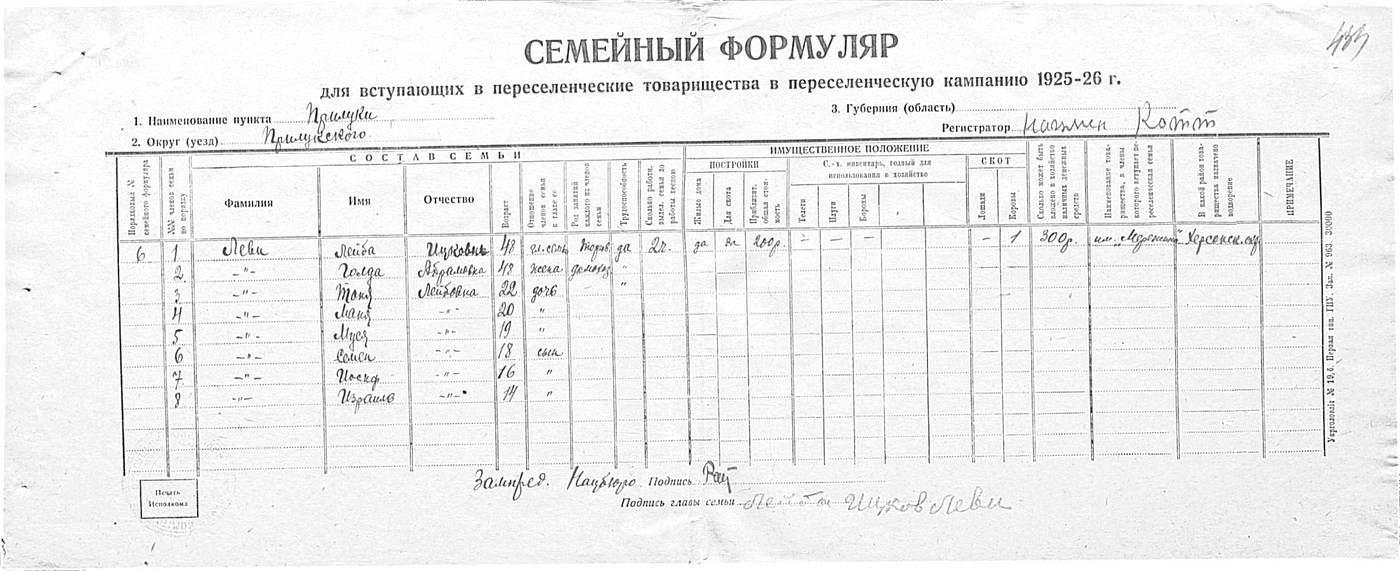 СЕМЕЙНЫЙ ФОРМУЛЯР
для вступающих в переселенческие товарищества в переселенческую кампанию 1925-26 г.
1. Наименование пункта Прилуки
3. Губерния (область)
2. Округ (уезд) Прилукского
Регистратор
СОСТАВ СЕМЬИ
ИМУЩЕСТВЕННОЕ ПОЛОЖЕНИЕ
ПОСТРОЙКИ
С.-х. инвентарь, годный для использования в хозяйстве
СКОТ
Порядковый № семейного формуляра
№№ членов семьи по порядку
Фамилия
Имя
Отчество
Возраст
Отношение членов семьи к главе ее
Род занятий каждого из членов семьи
Трудоспособность
Сколько работн. выдел. семьи до работы весною
Жилые дома
Для скота
Приблизит. общая стоимость
Телеги
Плуги
Бороны
Лошади
Коровы
Сколько может быть вложено в хозяйство наличных денежных средств
Наименование товарищества, в члены которого вступает переселенческая семья
В какой район товарищества назначено водворение
ПРИМЕЧАНИЕ
6 1 Леви Лейба Ицкович 48 гл. семь торгов да 2 ч. да 200р. – – – – 1 300р. им. Херсонск.
2 –"– Голда Абрамовна 48 жена домохоз "
3 –"– Таня Лейбовна 22 дочь "
4 –"– Маня –"– 20 "
5 –"– Муся –"– 19 "
6 –"– Семен –"– 18 сын
7 –"– Иосиф –"– 16 "
8 –"– Израиль –"– 14 "
Печать Исполкома
Зампред. Нацбюро Подпись
Подпись главы семьи Лейба Ицков Леви
Укрголовліт № 19,6. Первая тип. ГИУ. Зак. № 963. 30000